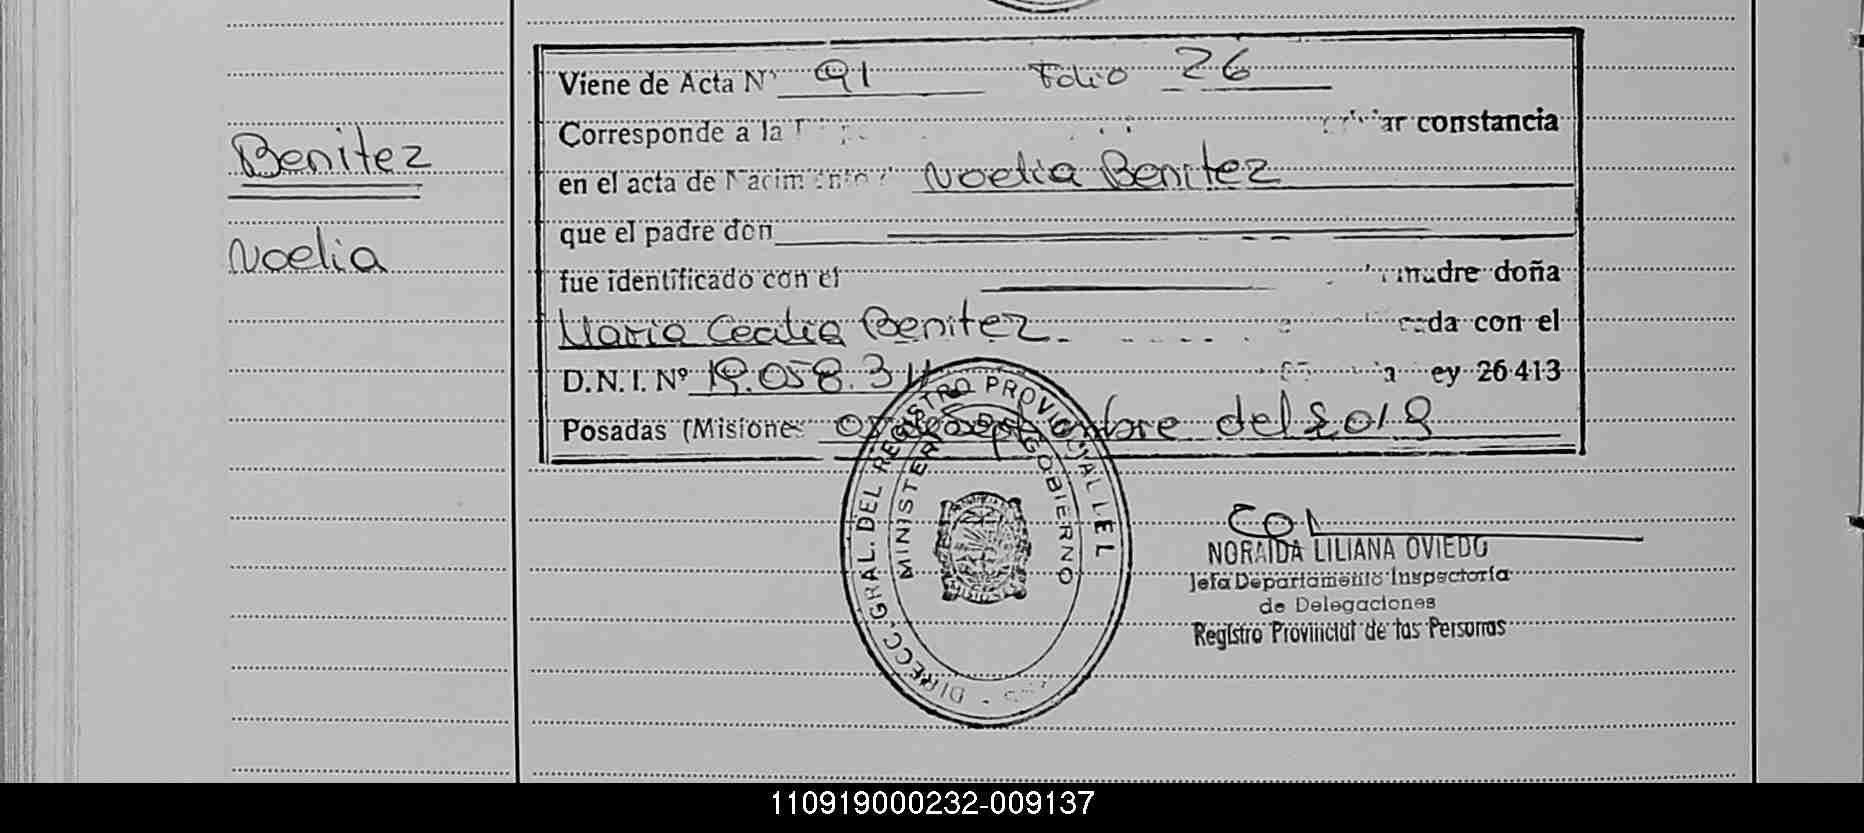 Viene de Acta N° 91 Folio 26
Corresponde a la ar constancia
en el acta de Nacimiento Noelia Benitez
que el padre don
fue identificado con el madre doña
Maria Cecilia Benitez da con el
D.N.I. Nº 19.058.311 ey 26413
Posadas (Misiones de Septiembre del 2019
Benitez
Noelia
DIRECC. GRAL. DEL REGISTRO PROVINCIAL DE L
MINISTER GOBIERNO
NORAIDA LILIANA OVIEDO
Jefa Departamento Inspectoría
de Delegaciones
Registro Provincial de las Personas
110919000232-009137